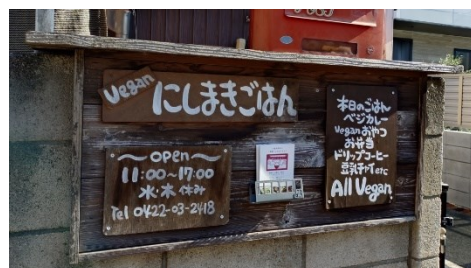 Vegan
にしまきごはん
〜open〜
11:00〜17:00
水・木 休み
Tel 0422-03-2418
本日のごはん
ベジカレー
Veganおやつ
お弁当
ドリップコーヒー
豆乳チャイetc
All Vegan